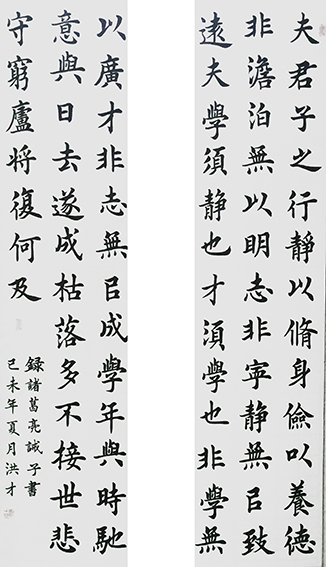 夫君子之行静以脩身儉以養德
非澹泊無以明志非寧静無㠯致
遠夫學須静也才須學也非學無
以廣才非志無㠯成學年與時馳
意與日去遂成枯落多不接世悲
守窮廬將復何及
録諸葛亮誡子書
己未年夏月洪才